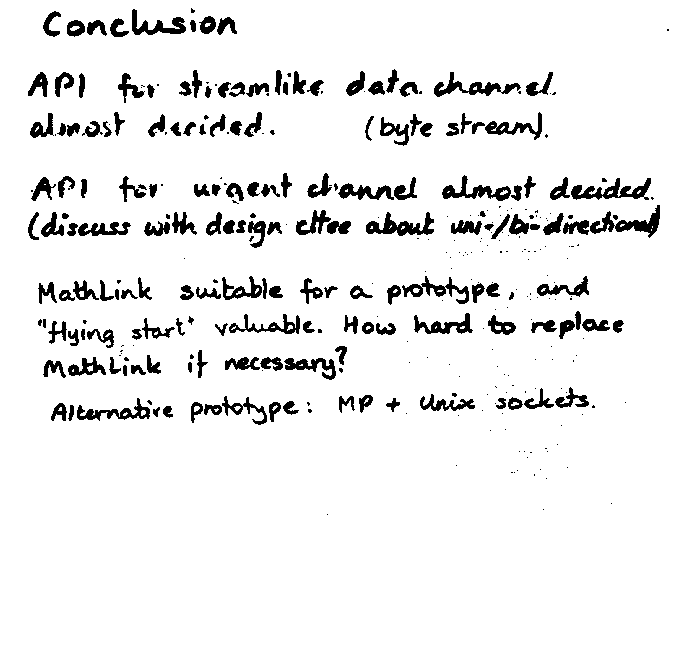 Conclusion
API for streamlike data channel.
almost decided. (byte stream).
API for urgent channel almost decided.
(discuss with design cttee about uni-/bi-directional)
MathLink suitable for a prototype, and
"flying start" valuable. How hard to replace
MathLink if necessary?
Alternative prototype: MP + Unix sockets.